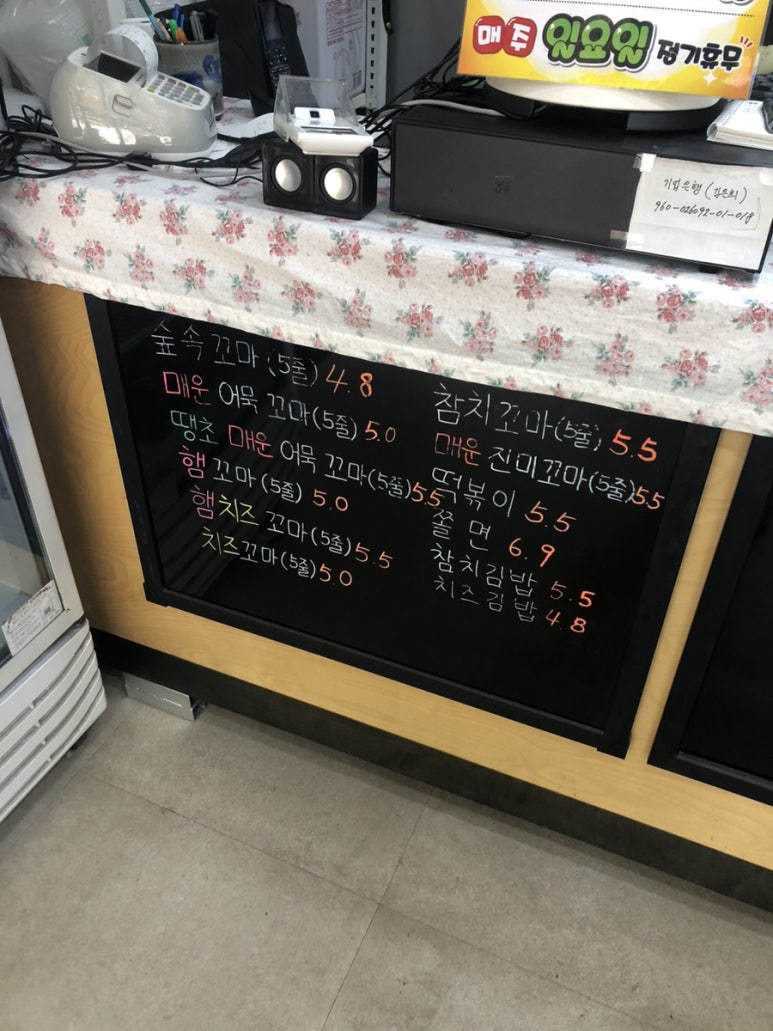 매주 일요일 정기휴무
기업은행 (김은희)
960-026092-01-018
숲속꼬마 (5줄) 4.8
매운 어묵 꼬마(5줄) 5.0
땡초 매운 어묵 꼬마(5줄)5.5
햄 꼬마 (5줄) 5.0
햄치즈 꼬마(5줄)5.5
치즈꼬마(5줄)5.0
참치꼬마(5줄) 5.5
매운 진미꼬마(5줄)5.5
떡볶이 5.5
쫄면 6.9
참치김밥 5.5
치즈김밥 4.8